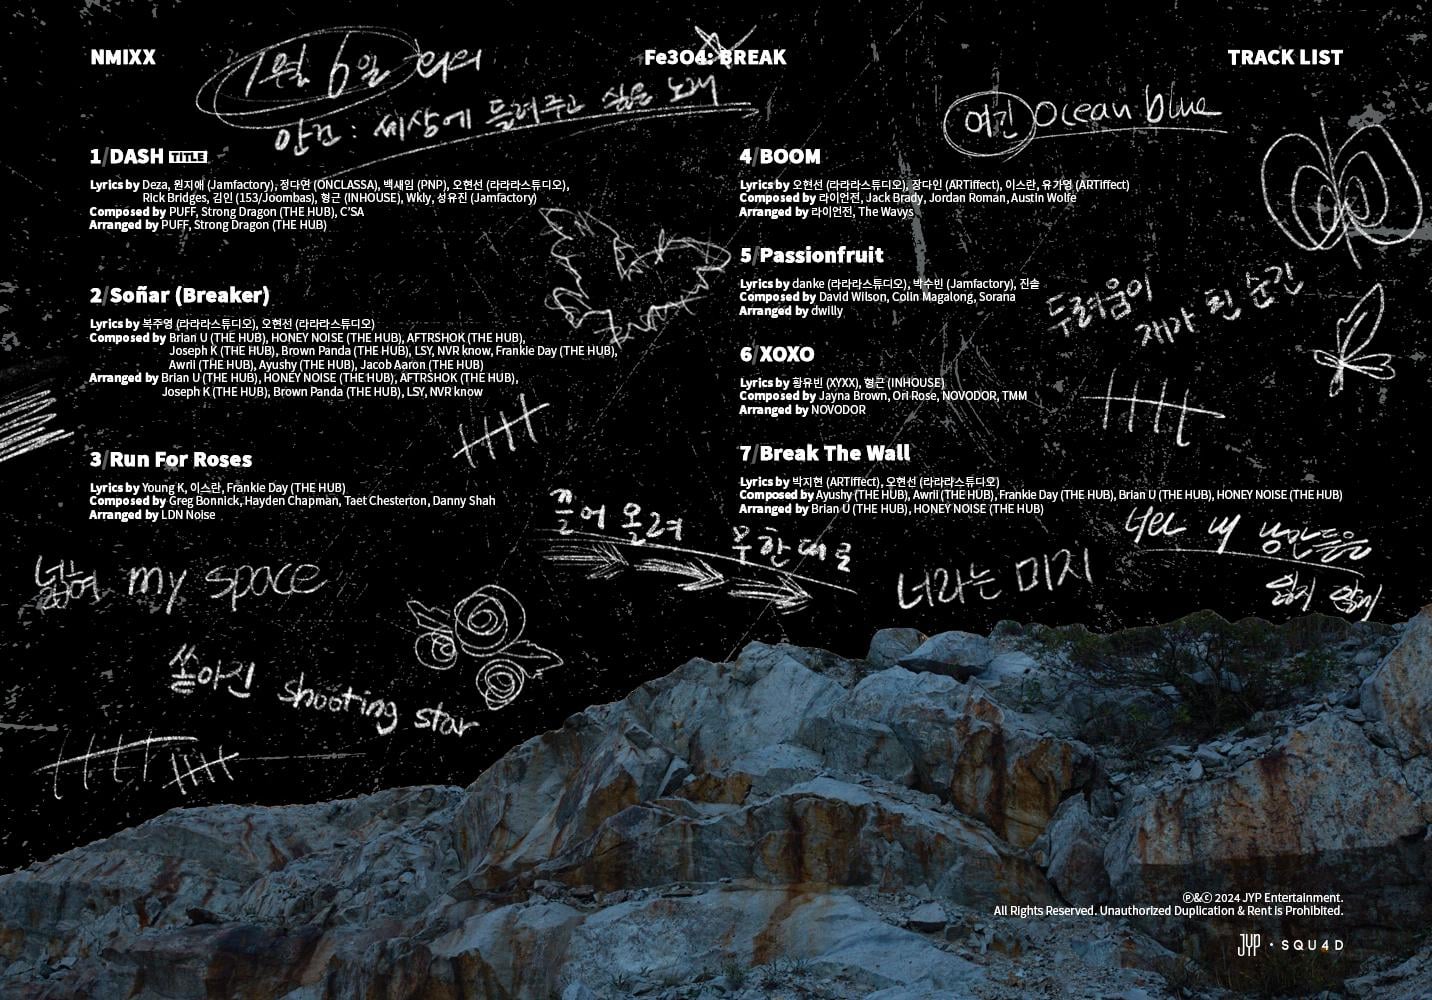 NMIXX
Fe3O4: BREAK
TRACK LIST
1월 6일 회의
안건 : 세상에 들려주고 싶은 노래
여긴 Ocean blue
1/DASH TITLE
Lyrics by Deza, 원지애 (Jamfactory), 정다연 (ONCLASSA), 백새임 (PNP), 오현선 (라라라스튜디오),
Rick Bridges, 김인 (153/Joombas), 형근 (INHOUSE), Wkly, 성유진 (Jamfactory)
Composed by PUFF, Strong Dragon (THE HUB), C'SA
Arranged by PUFF, Strong Dragon (THE HUB)
2/Soñar (Breaker)
Lyrics by 복주영 (라라라스튜디오), 오현선 (라라라스튜디오)
Composed by Brian U (THE HUB), HONEY NOISE (THE HUB), AFTRSHOK (THE HUB),
Joseph K (THE HUB), Brown Panda (THE HUB), LSY, NVR know, Frankie Day (THE HUB),
Awrii (THE HUB), Ayushy (THE HUB), Jacob Aaron (THE HUB)
Arranged by Brian U (THE HUB), HONEY NOISE (THE HUB), AFTRSHOK (THE HUB),
Joseph K (THE HUB), Brown Panda (THE HUB), LSY, NVR know
3/Run For Roses
Lyrics by Young K, 이스란, Frankie Day (THE HUB)
Composed by Greg Bonnick, Hayden Chapman, Taet Chesterton, Danny Shah
Arranged by LDN Noise
4/BOOM
Lyrics by 오현선 (라라라스튜디오), 장다인 (ARTiffect), 이스란, 유가영 (ARTiffect)
Composed by 라이언전, Jack Brady, Jordan Roman, Austin Wolfe
Arranged by 라이언전, The Wavys
5/Passionfruit
Lyrics by danke (라라라스튜디오), 박수빈 (Jamfactory), 진솔
Composed by David Wilson, Colin Magalong, Sorana
Arranged by dwilly
두려움이
재가 된 순간
6/XOXO
Lyrics by 황유빈 (XYXX), 형근 (INHOUSE)
Composed by Jayna Brown, Ori Rose, NOVODOR, TMM
Arranged by NOVODOR
7/Break The Wall
Lyrics by 박지현 (ARTiffect), 오현선 (라라라스튜디오)
Composed by Ayushy (THE HUB), Awrii (THE HUB), Frankie Day (THE HUB), Brian U (THE HUB), HONEY NOISE (THE HUB)
Arranged by Brian U (THE HUB), HONEY NOISE (THE HUB)
끌어 올려
무한대로
너라는 미지
너넨 내 낭만들을
잃지 않지
넓혀 my space
쏟아진 shooting star
ⓟ&ⓒ 2024 JYP Entertainment.
All Rights Reserved. Unauthorized Duplication & Rent is Prohibited.
JYP · SQU4D